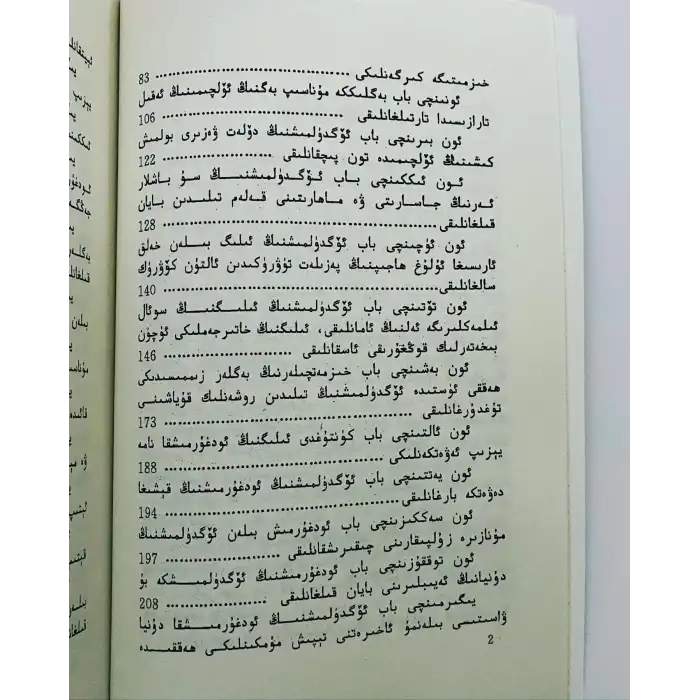 خىزمىتىگە كىرگەنلىكى ........................................ 83
ئونىنچى باب بەگلىككە مۇناسىپ بەگنىڭ ئۆلچىمىنىڭ ئەقىل
تارازىسىدا تارتىلغانلىقى ........................................ 106
ئون بىرىنچى باب ئۆگدۈلمىشنىڭ دۆلەت ۋەزىرى بولمىش
كىشىنىڭ ئۆلچىمىدە تون پىچقانلىقى ........................ 122
ئون ئىككىنچى باب ئۆگدۈلمىشنىڭ سۇ باشلار
ئەرنىڭ جاسارىتى ۋە ماھارىتىنى قەلەم تىلىدىن بايان
قىلغانلىقى ........................................ 128
ئون ئۈچىنچى باب ئۆگدۈلمىشنىڭ ئىلىگ بىلەن خەلق
ئارىسىغا ئۇلۇغ ھاجىپنىڭ پەزىلەت تۈۋرۈكىدىن ئالتۇن كۆۋرۈك
سالغانلىقى ........................................ 140
ئون تۆتىنچى باب ئۆگدۈلمىشنىڭ ئىلىگنىڭ سوئال
ئىلمەكلىرىگە ئەلنىڭ ئامانلىقى، ئىلىگنىڭ خاتىرجەملىكى ئۈچۈن
بىخەتەرلىك قوڭغۇرىقى ئاسقانلىقى ........................ 146
ئون بەشىنچى باب خىزمەتچىلەرنىڭ بەگلەر زىممىسىدىكى
ھەققى ئۈستىدە ئۆگدۈلمىشنىڭ تىلىدىن روشەنلىك قۇياشىنى
تۇغدۇرغانلىقى ........................................ 173
ئون ئالتىنچى باب كۈنتۇغدى ئىلىگنىڭ ئودغۇرمىشقا نامە
يېزىپ ئەۋەتكەنلىكى ........................................ 188
ئون يەتتىنچى باب ئۆگدۈلمىشنىڭ ئودغۇرمىشنىڭ قېشىغا
دەۋەتكە بارغانلىقى ........................................ 194
ئون سەككىزىنچى باب ئودغۇرمىش بىلەن ئۆگدۈلمىشنىڭ
مۇنازىرە زۇلپىقارىنى چىقىرىشقانلىقى ........................ 197
ئون توققۇزىنچى باب ئودغۇرمىشنىڭ ئۆگدۈلمىشكە بۇ
دۇنيانىڭ ئەيىبلىرىنى بايان قىلغانلىقى ........................ 208
يىگىرمىنچى باب ئۆگدۈلمىشنىڭ ئودغۇرمىشقا دۇنيا
ۋاستىسى بىلەنمۇ ئاخىرەتنى تېپىش مۇمكىنلىكى ھەققىدە
2